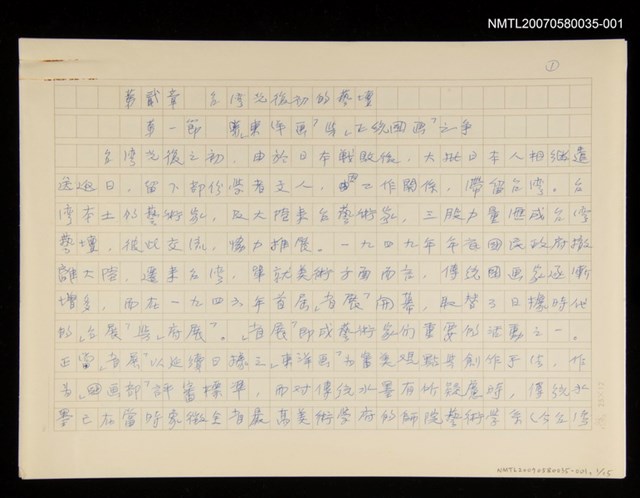 NMTL20070580035-001
①
第貳章 台灣光復初的藝壇
第一節 「東洋畫」與「正統國畫」之爭
台灣光復之初，由於日本戰敗後，大批日本人相繼遣
送返日，留下部份學者文人，因工作關係，滯留台灣。台
灣本土的藝術家，及大陸來台藝術家，三股力量匯成台灣
藝壇，彼此交流，懷力推展。一九四九年年底國民政府撤
離大陸，遷來台灣，單就美術方面而言，傳統國畫家逐漸
增多，而在一九四六年首屆「省展」開幕，取替了日據時代
的「台展」與「府展」。「省展」即成藝術家們重要的活動之一。
正當「省展」以延續日據之「東洋畫」為審美觀點與創作手法，作
為「國畫部」評審標準，而對傳統水墨有所疑慮時，傳統水
墨已在當時象徵全省最高美術學府的師院藝術學系（今立
NMTL20070580035-001, 1/25